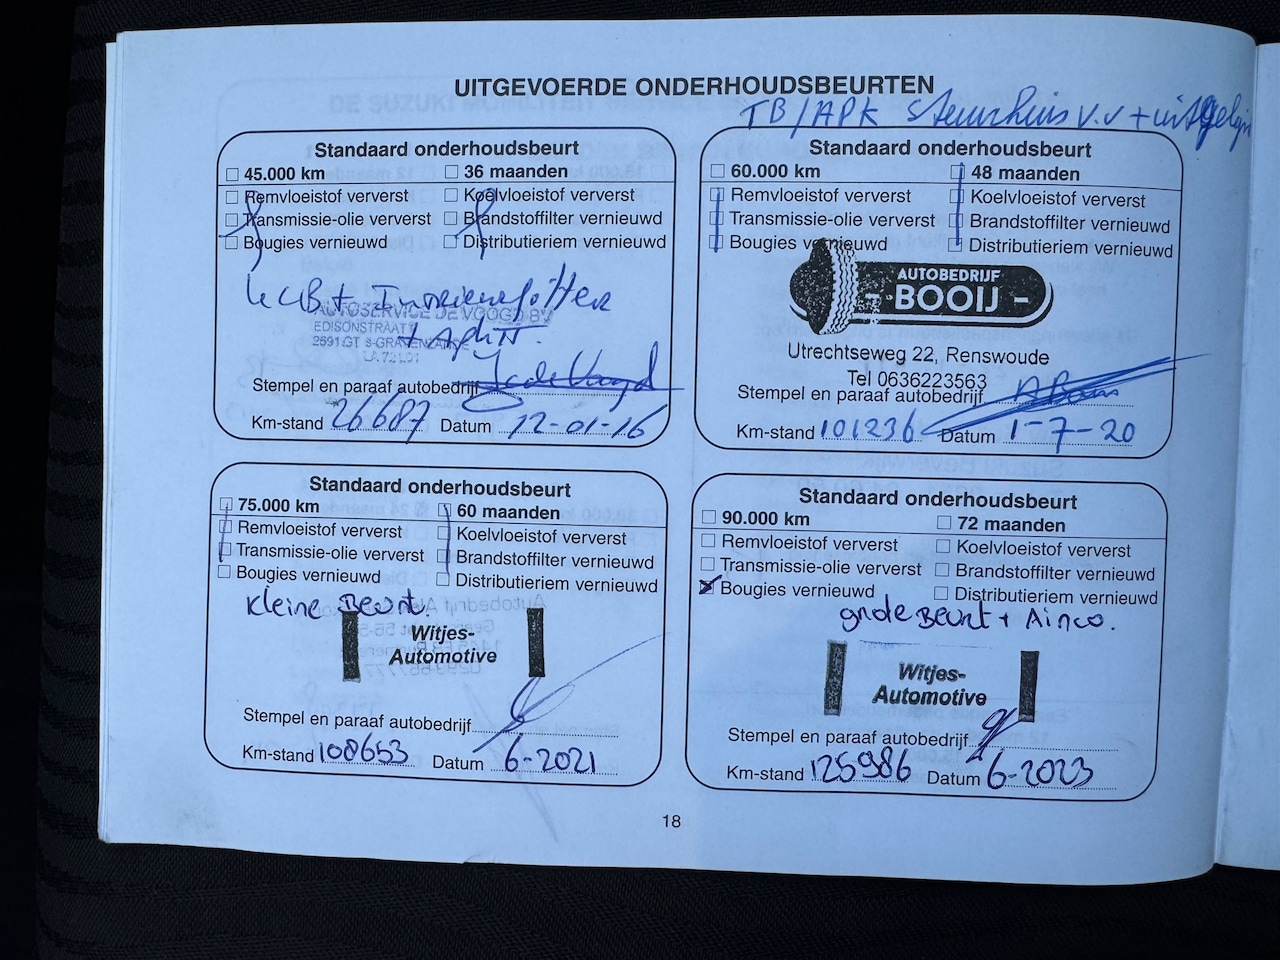 UITGEVOERDE ONDERHOUDSBEURTEN
TB/APK stuurhuis v.v +
Standaard onderhoudsbeurt
45.000 km 36 maanden
Remvloeistof ververst Koelvloeistof ververst
Transmissie-olie ververst Brandstoffilter vernieuwd
Bougies vernieuwd Distributieriem vernieuwd
AUTOSERVICE DE VOOGD BV
EDISONSTRAAT
2691 GT 'S-GRAVENZANDE
Stempel en paraaf autobedrijf
Km-stand 26687 Datum 12-01-16
Standaard onderhoudsbeurt
60.000 km 48 maanden
Remvloeistof ververst Koelvloeistof ververst
Transmissie-olie ververst Brandstoffilter vernieuwd
Bougies vernieuwd Distributieriem vernieuwd
AUTOBEDRIJF
- BOOIJ -
Utrechtseweg 22, Renswoude
Tel 0636223563
Stempel en paraaf autobedrijf
Km-stand 101236 Datum 1-7-20
Standaard onderhoudsbeurt
75.000 km 60 maanden
Remvloeistof ververst Koelvloeistof ververst
Transmissie-olie ververst Brandstoffilter vernieuwd
Bougies vernieuwd Distributieriem vernieuwd
Kleine Beurt.
Witjes-
Automotive
Stempel en paraaf autobedrijf
Km-stand 108653 Datum 6-2021
Standaard onderhoudsbeurt
90.000 km 72 maanden
Remvloeistof ververst Koelvloeistof ververst
Transmissie-olie ververst Brandstoffilter vernieuwd
Bougies vernieuwd Distributieriem vernieuwd
grote Beurt + Airco.
Witjes-
Automotive
Stempel en paraaf autobedrijf
Km-stand 125986 Datum 6-2023
18